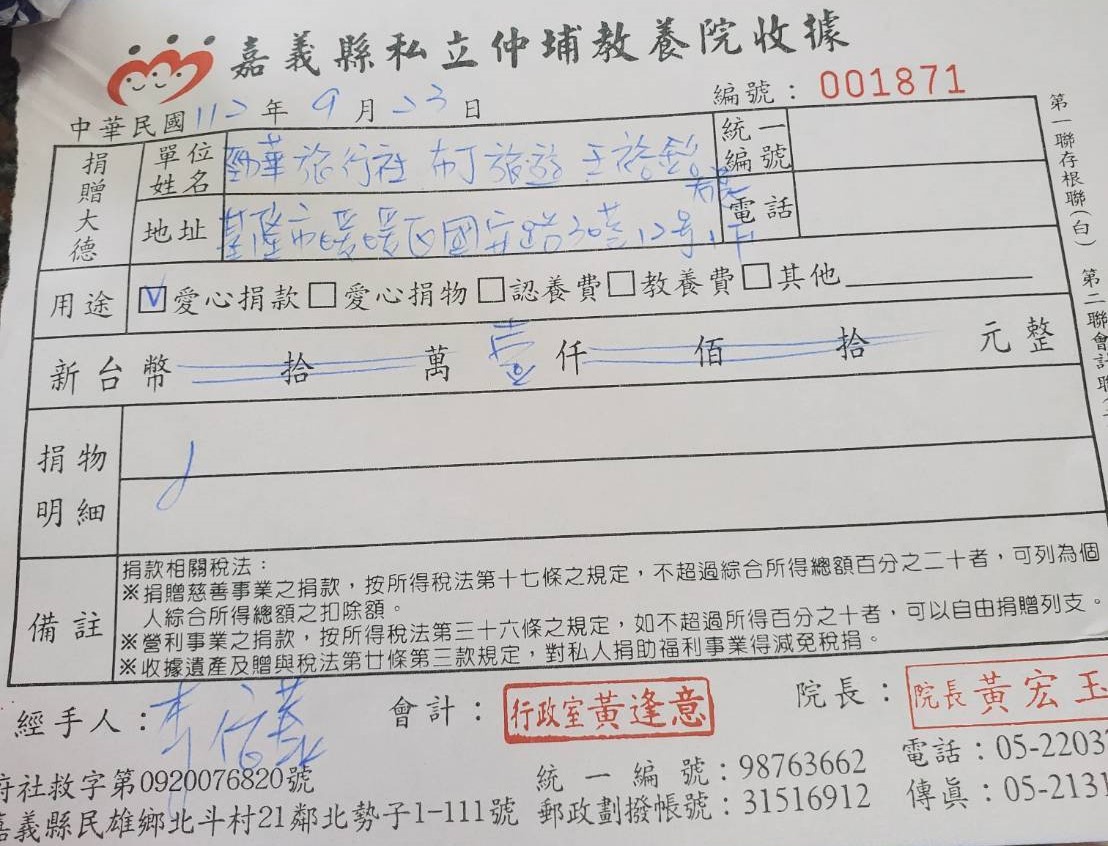 嘉義縣私立仲埔教養院收據
編號：001871
中華民國112年9月23日
捐贈大德
單位姓名 勁華旅行社 布丁旅遊 王裕
統一編號
地址 基隆市暖暖區國安路30巷12号1F
電話
用途 ☑愛心捐款□愛心捐物□認養費□教養費□其他
新台幣 拾 萬 壹 仟 佰 拾 元整
捐物明細
備註
捐款相關稅法：
※捐贈慈善事業之捐款，按所得稅法第十七條之規定，不超過綜合所得總額百分之二十者，可列為個
人綜合所得總額之扣除額。
※營利事業之捐款，按所得稅法第三十六條之規定，如不超過所得百分之十者，可以自由捐贈列支。
※收據遺產及贈與稅法第廿條第三款規定，對私人捐助福利事業得減免稅捐。
經手人：
會計：行政室黃逢意
院長：院長黃宏玉
府社救字第0920076820號
統一編號：98763662
電話：05-2203
嘉義縣民雄鄉北斗村21鄰北勢子1-111號
郵政劃撥帳號：31516912
傳真：05-2131
第一聯存根聯(白)
第二聯會計聯